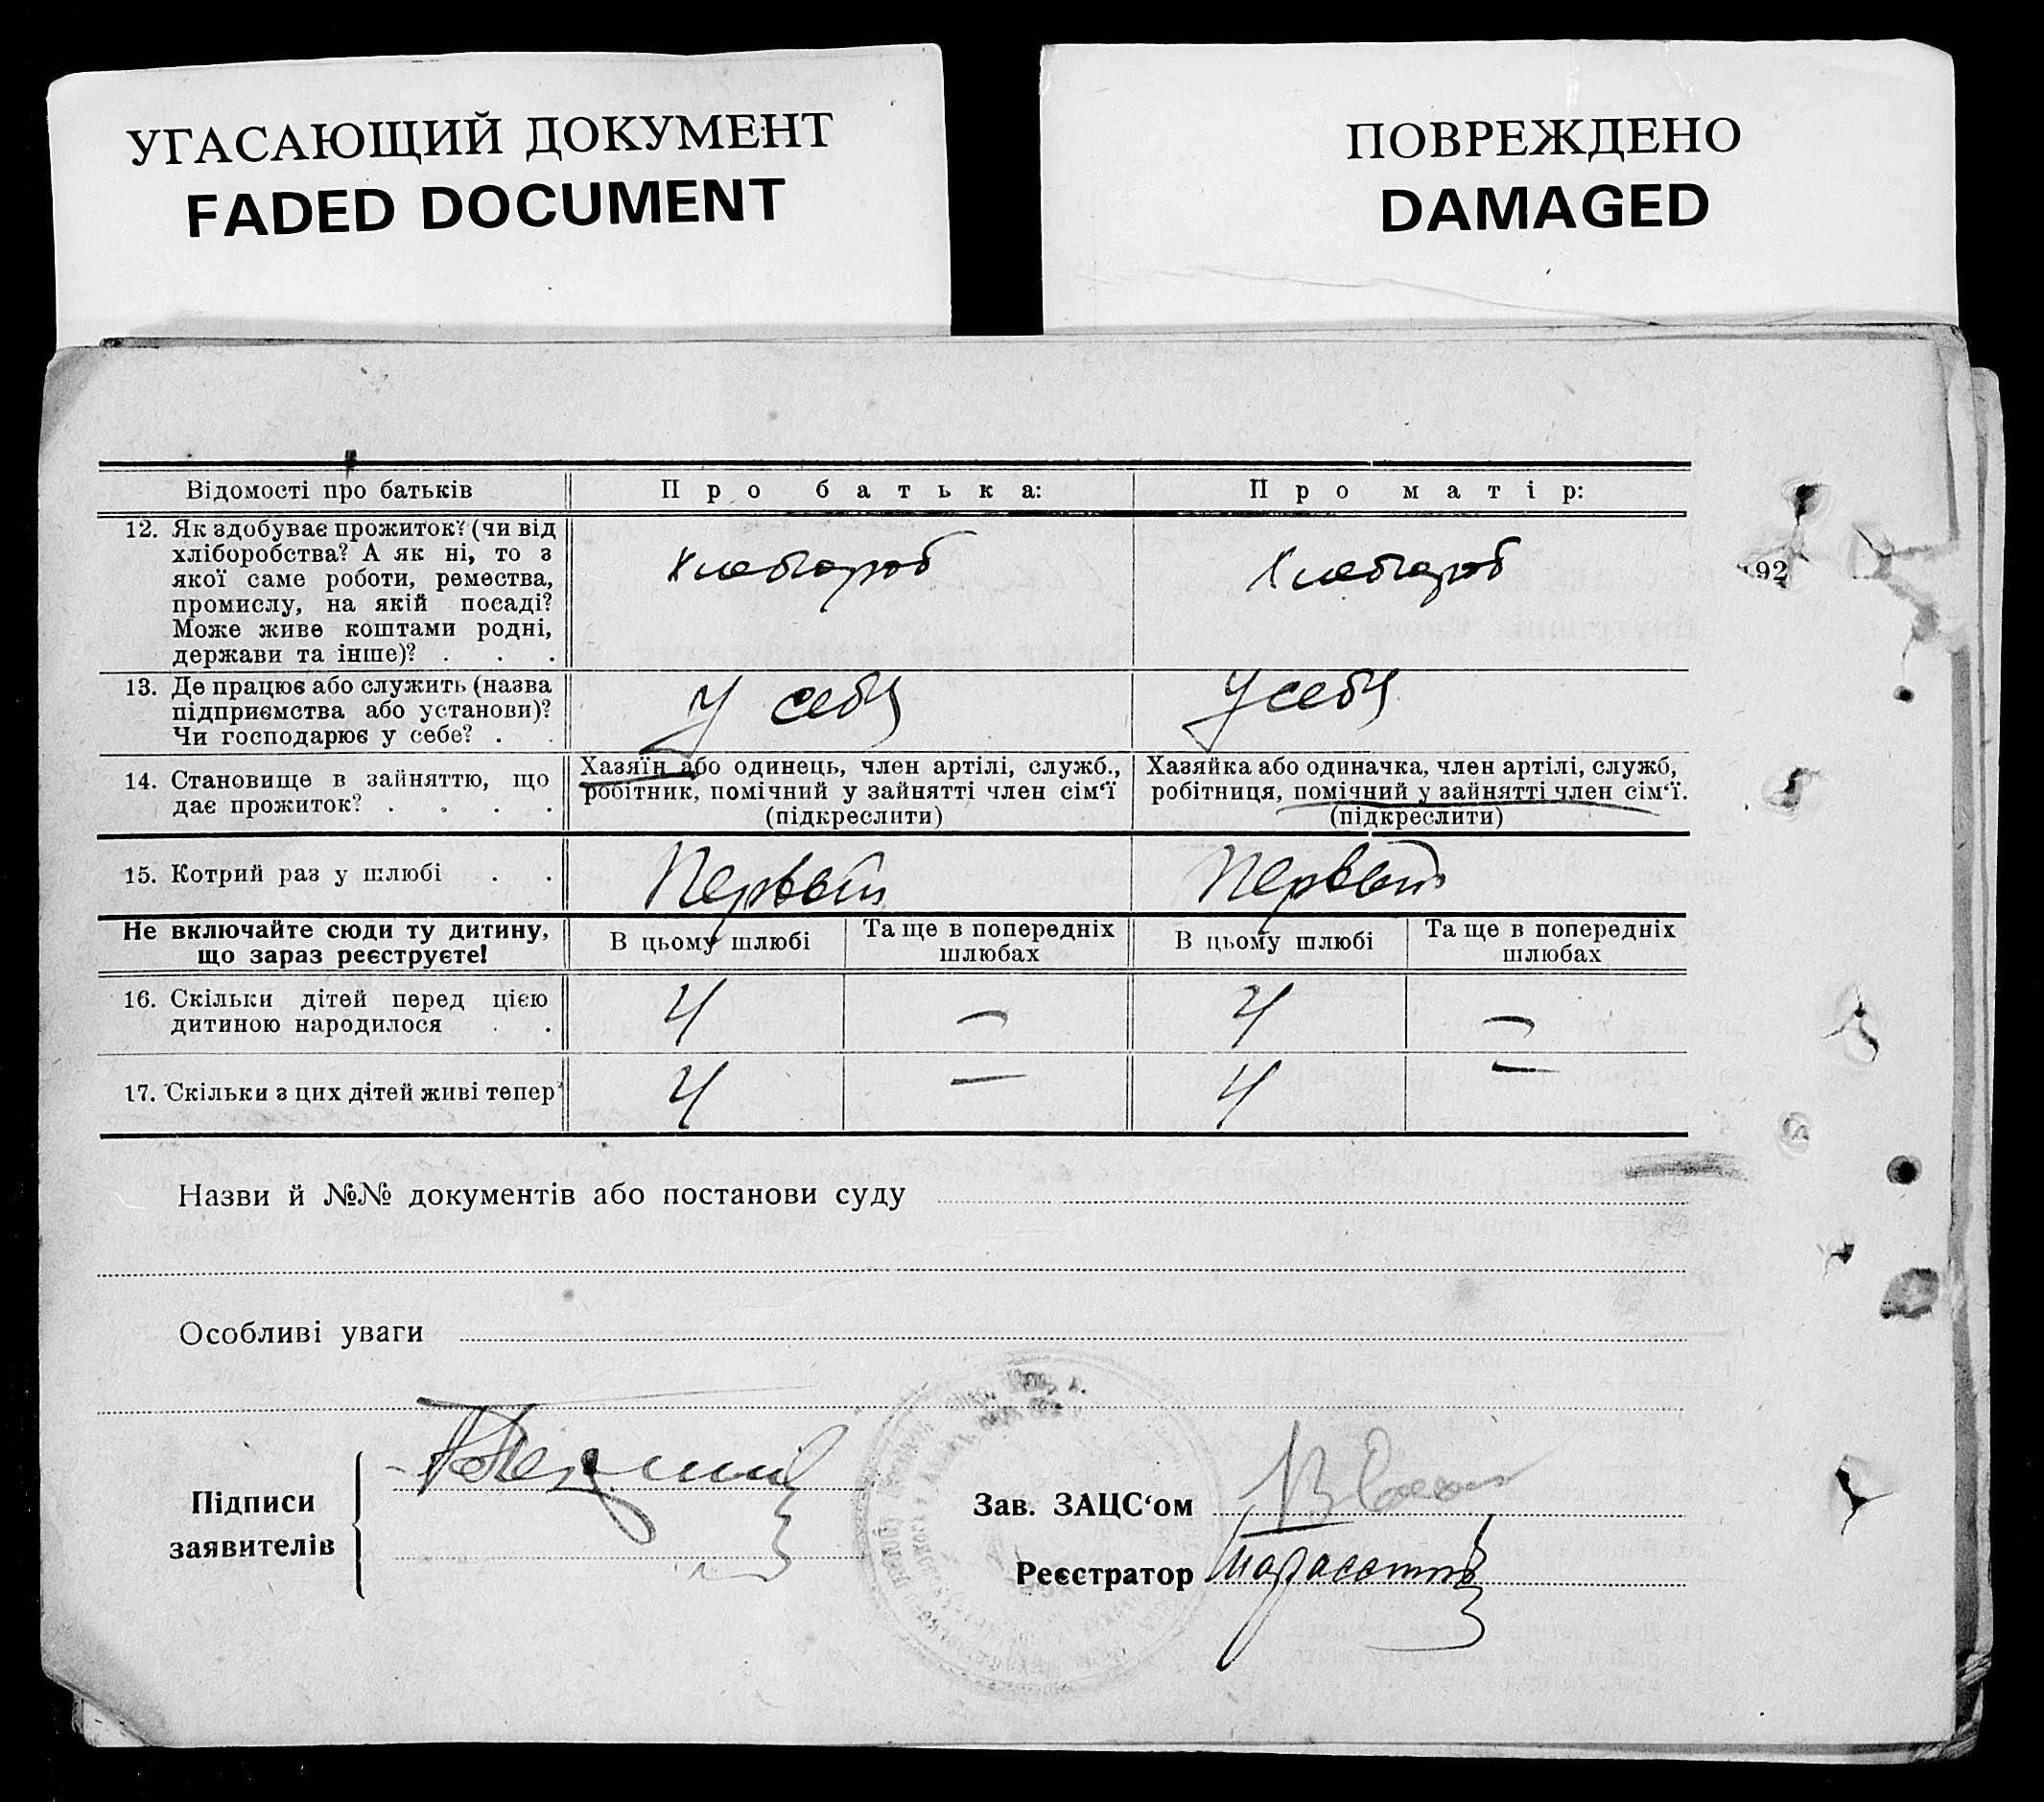 УГАСАЮЩИЙ ДОКУМЕНТ
FADED DOCUMENT
ПОВРЕЖДЕНО
DAMAGED
Відомості про батьків
Про батька:
Про матір:
12. Як здобуває прожиток? (чи від
хліборобства? А як ні, то з
якої саме роботи, ремества,
промислу, на якій посаді?
Може живе коштами родні,
держави та інше)? . . .
Хлебороб
Хлебороб
192
13. Де працює або служить (назва
підприємства або установи)?
Чи господарює у себе? . .
У себя
У себя
14. Становище в зайняттю, що
дає прожиток? . . . .
Хазяїн або одинець, член артілі, служб.,
робітник, помічний у зайнятті член сім‘ї
(підкреслити)
Хазяйка або одиначка, член артілі, служб,
робітниця, помічний у зайнятті член сім‘ї.
(підкреслити)
15. Котрий раз у шлюбі . .
Первый
Первый
Не включайте сюди ту дитину,
що зараз реєструєте!
В цьому шлюбі
Та ще в попередніх
шлюбах
В цьому шлюбі
Та ще в попередніх
шлюбах
16. Скільки дітей перед цією
дитиною народилося . .
4 — 4 —
17. Скільки з цих дітей живі тепер
4 — 4 —
Назви й №№ документів або постанови суду
Особливі уваги
Підписи
заявителів
Зав. ЗАЦС‘ом
Реєстратор